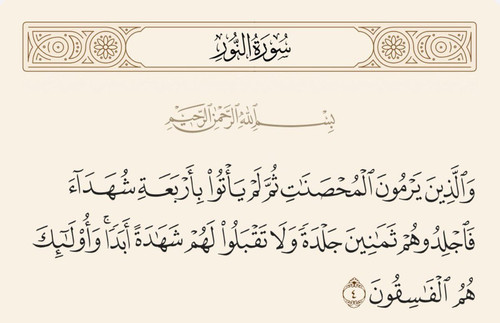 سُورَةُ النُّورِ
بِسْمِ اللَّهِ الرَّحْمَٰنِ الرَّحِيمِ
وَالَّذِينَ يَرْمُونَ الْمُحْصَنَاتِ ثُمَّ لَمْ يَأْتُوا بِأَرْبَعَةِ شُهَدَاءَ
فَاجْلِدُوهُمْ ثَمَانِينَ جَلْدَةً وَلَا تَقْبَلُوا لَهُمْ شَهَادَةً أَبَدًا ۚ وَأُولَٰئِكَ
هُمُ الْفَاسِقُونَ ٤